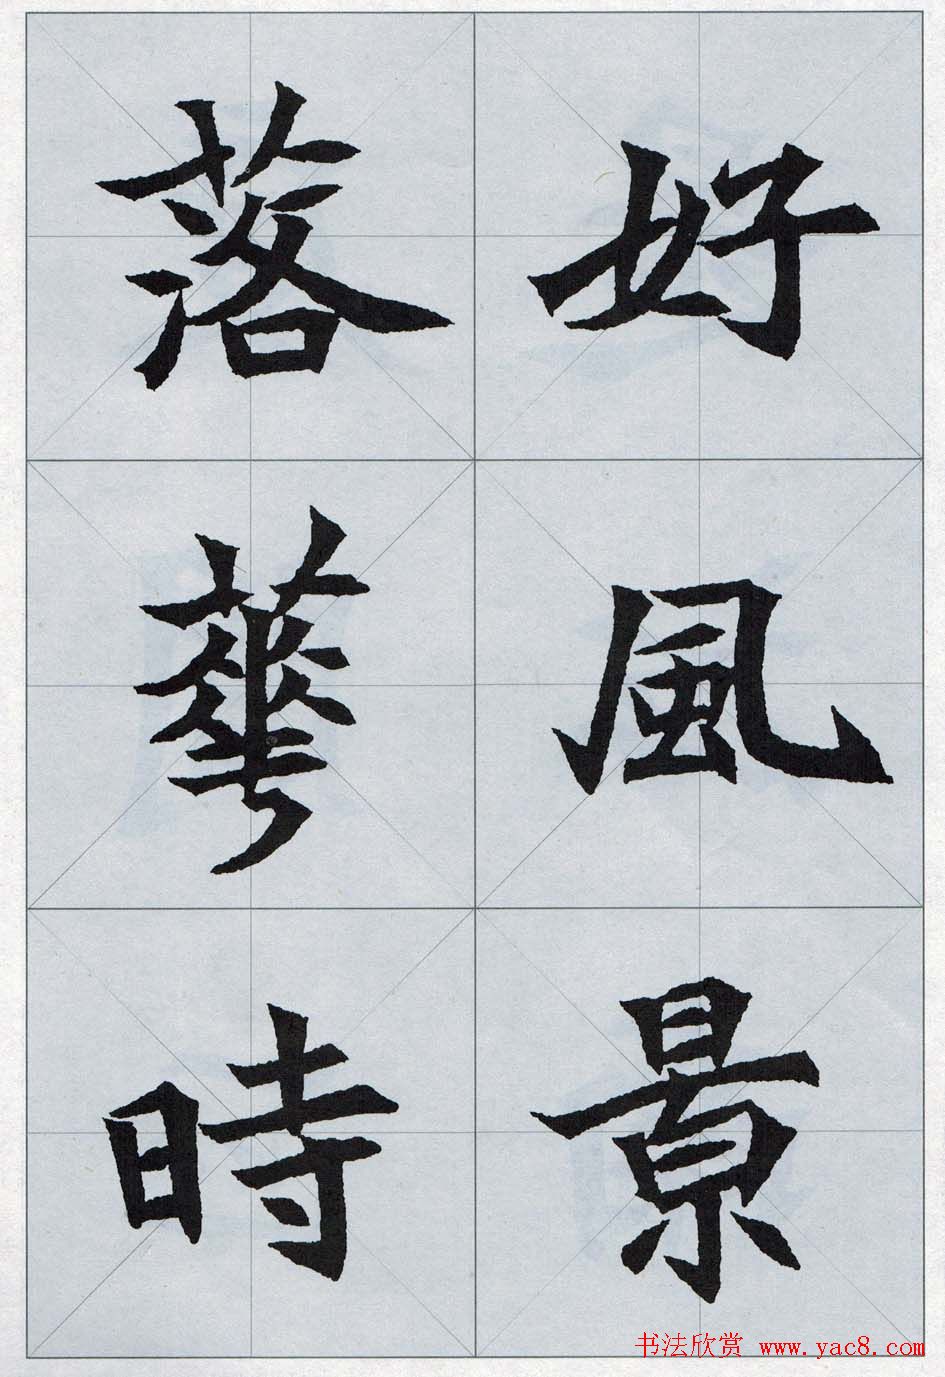 好風景
落華時
书法欣赏 www.yac8.com